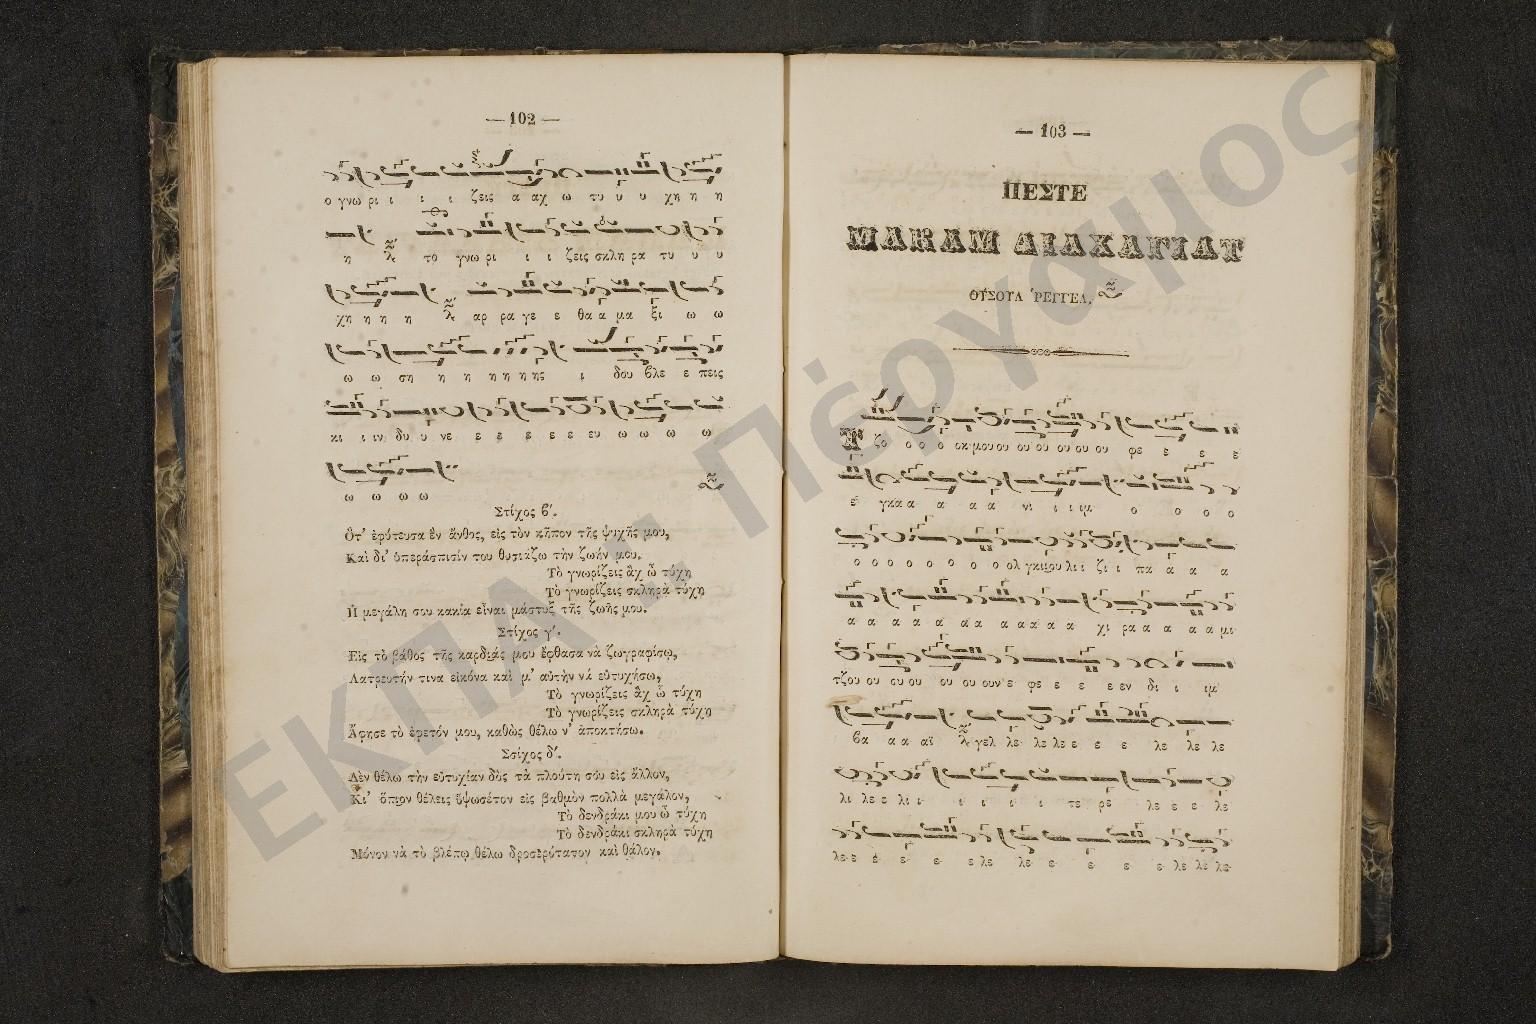 — 102 —
ο γνω ρι ι ι ι ζεις α αχ ω τυ υ υ χη η η
η το γνω ρι ι ι ζεις σκλη ρα τυ υ υ
χη η η η αρ ρα γε ε θα α μα ξι ω ω
ω ω ση η η η η η ης ι δου βλε ε πεις
κι ι ιν δυ υ νε ε ε ε ε ε ευ ω ω ω ω
ω ω ω ω
Στίχος β΄.
Ὅτ' ἐφύτευσα ἓν ἄνθος, εἰς τὸν κῆπον τῆς ψυχῆς μου,
Καὶ δι' ὑπεράσπισίν του θυσιάζω τὴν ζωήν μου.
Τὸ γνωρίζεις ἂχ ὦ τύχη
Τὸ γνωρίζεις σκληρὰ τύχη
Ἡ μεγάλη σου κακία εἶναι μάστυξ τῆς ζωῆς μου.
Στίχος γ΄.
Εἰς τὸ βάθος τῆς καρδιάς μου ἔφθασα νὰ ζωγραφίσω,
Λατρευτήν τινα εἰκόνα καὶ μ' αὐτὴν νὰ εὐτυχήσω,
Τὸ γνωρίζεις ἂχ ὦ τύχη
Τὸ γνωρίζεις σκληρὰ τύχη
Ἄφησε τὸ ἐρετόν μου, καθὼς θέλω ν' ἀποκτήσω.
Σσίχος δ΄.
Δὲν θέλω τὴν εὐτυχίαν δὸς τὰ πλούτη σου εἰς ἄλλον,
Κι' ὅπιον θέλεις ὕψωσέτον εἰς βαθμὸν πολλὰ μεγάλον,
Τὸ δενδράκι μου ὦ τύχη
Τὸ δενδράκι σκληρὰ τύχη
Μόνον νὰ τὸ βλέπω θέλω δροσερότατον καὶ θάλον.
— 103 —
ΠΕΣΤΕ
ΜΑΚΑΜ ΔΙΑΧΑΓΙΑΤ
ΟΥΣΟΥΛ ῬΕΓΓΕΛ.
Τ ζο ο ο ο οκ μου ου ου ου ου ου ου φε ε ε ε
ε γκα α α α α νι ι ι ιμ ο ο ο ο
ο ο ο ο ο ο ο ο ολ γκιου λι ι ζι ι πα α α α
α α α α α α α α α α α α χι ρα α α α α μι
τζου ου ου ου ου ου ουν ε φε ε ε ε εν δι ι ιμ
βα α α αϊ γελ λε λε λε ε ε ε λε λε λε
λι λε ε λι ι ι ι ι ι τε ρε λε ε ε λε
λε ε ε ε ε ε λε λε ε ε ε ε λε λε λε
ΕΚΠΑ - Πέργαμος